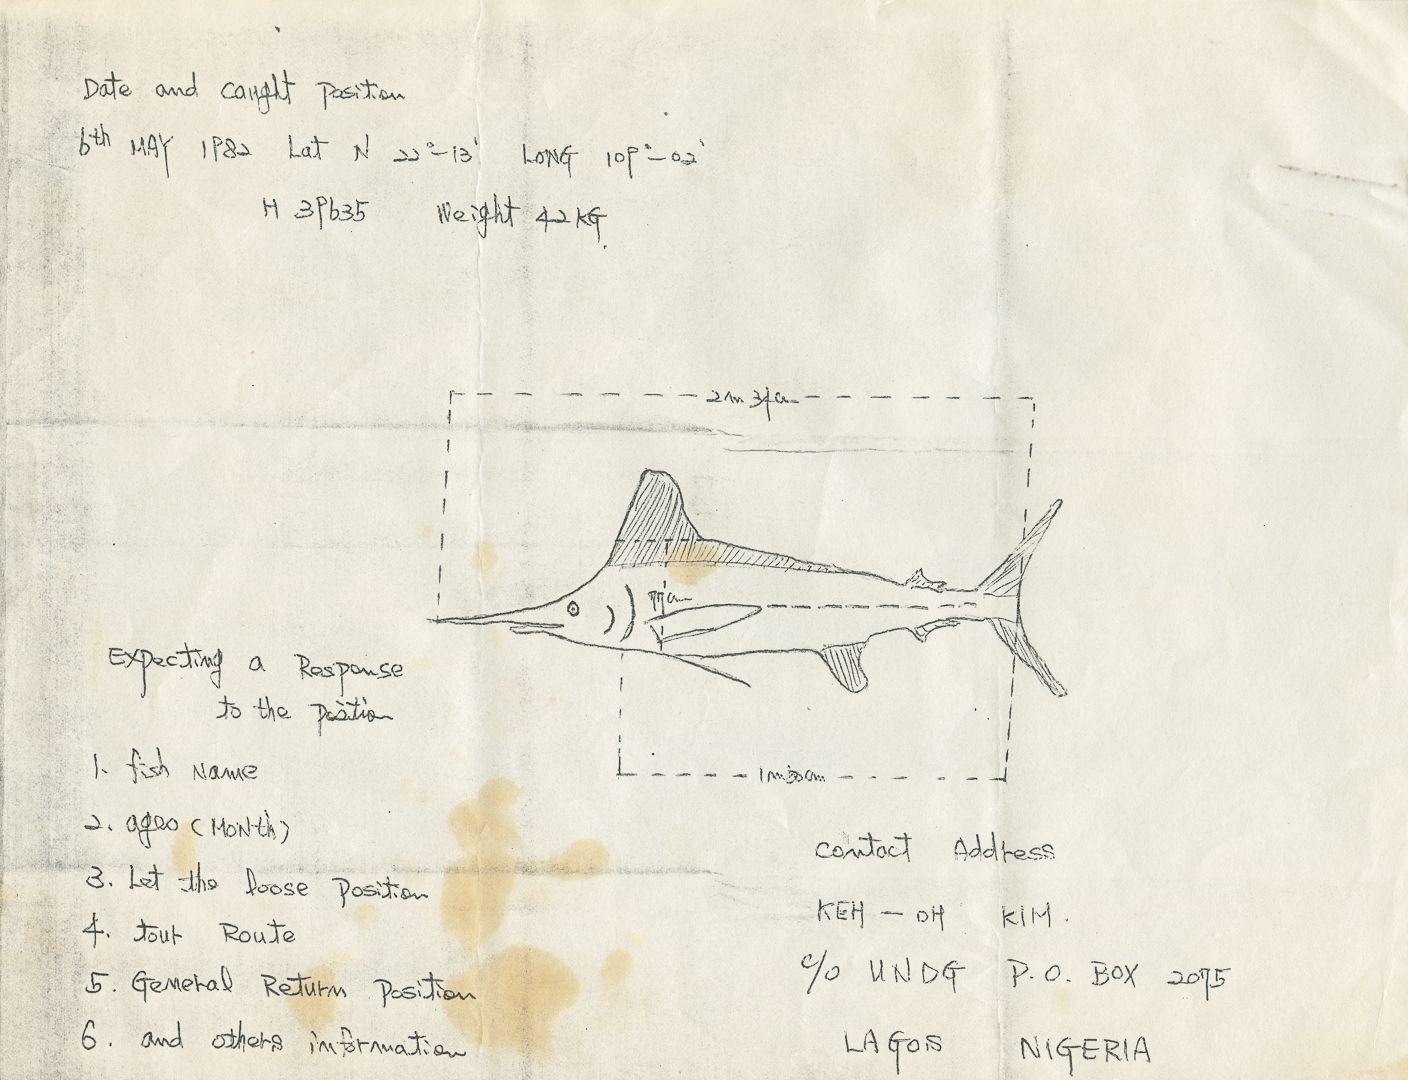 Date and caught position
6th MAY 1982 Lat N 22°-13' LONG 109°-02'
H 39635 Weight 42KG.
2m 31cm
77cm
1m 50cm
Expecting a Response
to the position
1. fish Name
2. ages (MONth)
3. Let the loose position
4. tour Route
5. General Return position
6. and others information
contact Address
KEH - OH KIM.
c/o UNDG P.O. BOX 2075
LAGOS NIGERIA